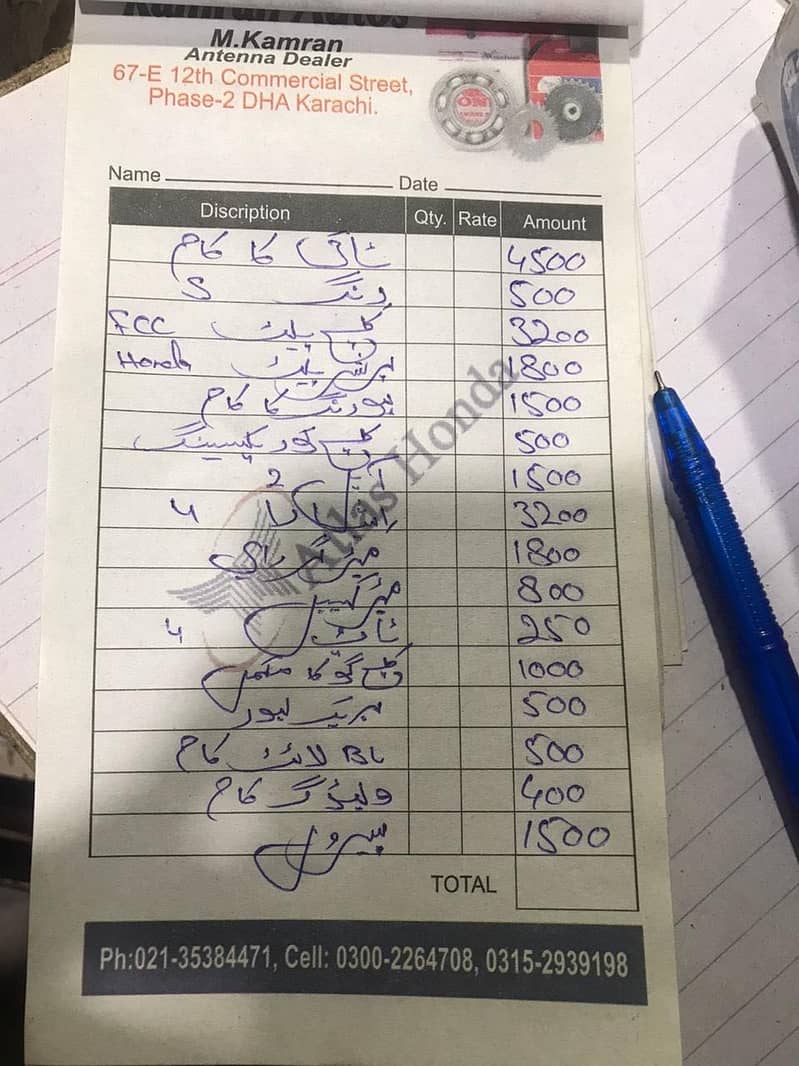 Kamran Autos
M.Kamran
Antenna Dealer
67-E 12th Commercial Street,
Phase-2 DHA Karachi.
Name Date
Discription Qty. Rate Amount
کا کام 4500
رنگ S 500
کلچ پلیٹ FCC 3200
پریشر پلیٹ Honda 1800
بورنگ کا کام 1500
کلچ کور 500
آئل 2 1500
4 3200
1800
میٹر کیبل 800
4 250
کا مکمل 1000
بریک لیور 500
BL لائٹ کام 500
ویلڈنگ کام 400
پیٹرول 1500
TOTAL
Atlas Honda
Ph:021-35384471, Cell: 0300-2264708, 0315-2939198